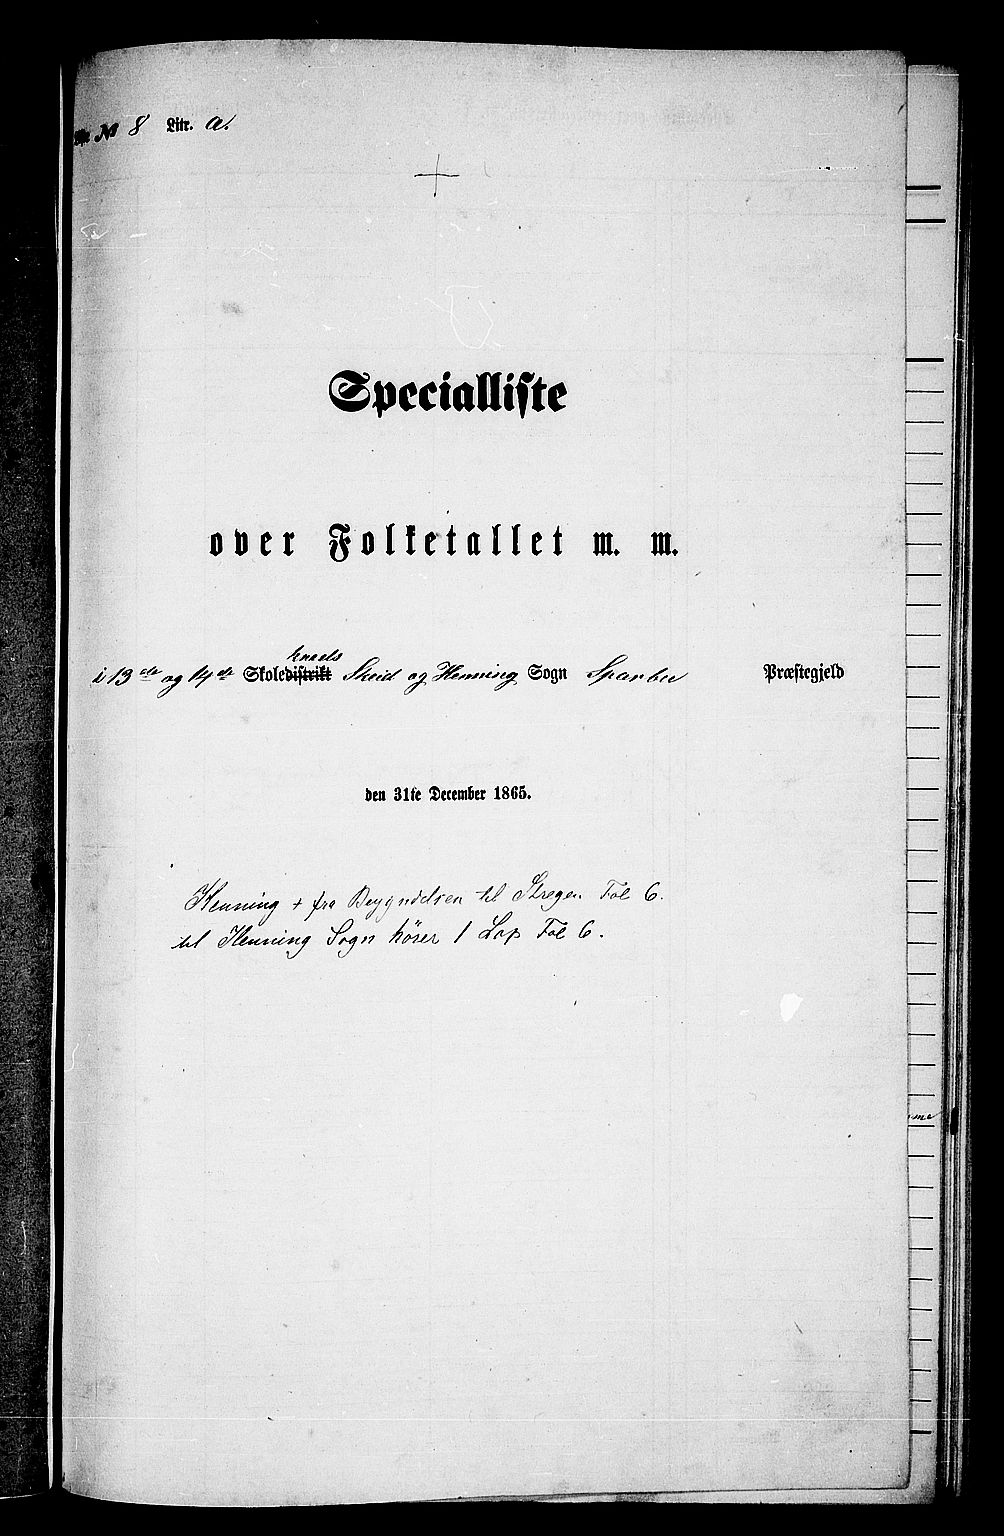 № 8 Litr. a.
Specialliste
over Folketallet m. m.
kreds
i 13de og 14de Skoledistrikt Skeid og Henning Sogn Sparbu Præstegjeld
den 31te December 1865.
Henning + fra Begyndelsen til Stregen Fol 6.
til Henning Sogn hörer 1 Lap Fol 6.